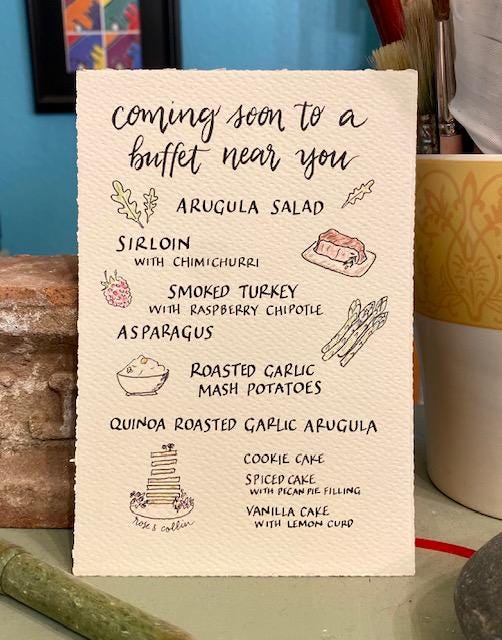 coming soon to a
buffet near you
ARUGULA SALAD
SIRLOIN
WITH CHIMICHURRI
SMOKED TURKEY
WITH RASPBERRY CHIPOTLE
ASPARAGUS
ROASTED GARLIC
MASH POTATOES
QUINOA ROASTED GARLIC ARUGULA
COOKIE CAKE
SPICED CAKE
WITH PECAN PIE FILLING
VANILLA CAKE
WITH LEMON CURD
rose & collin